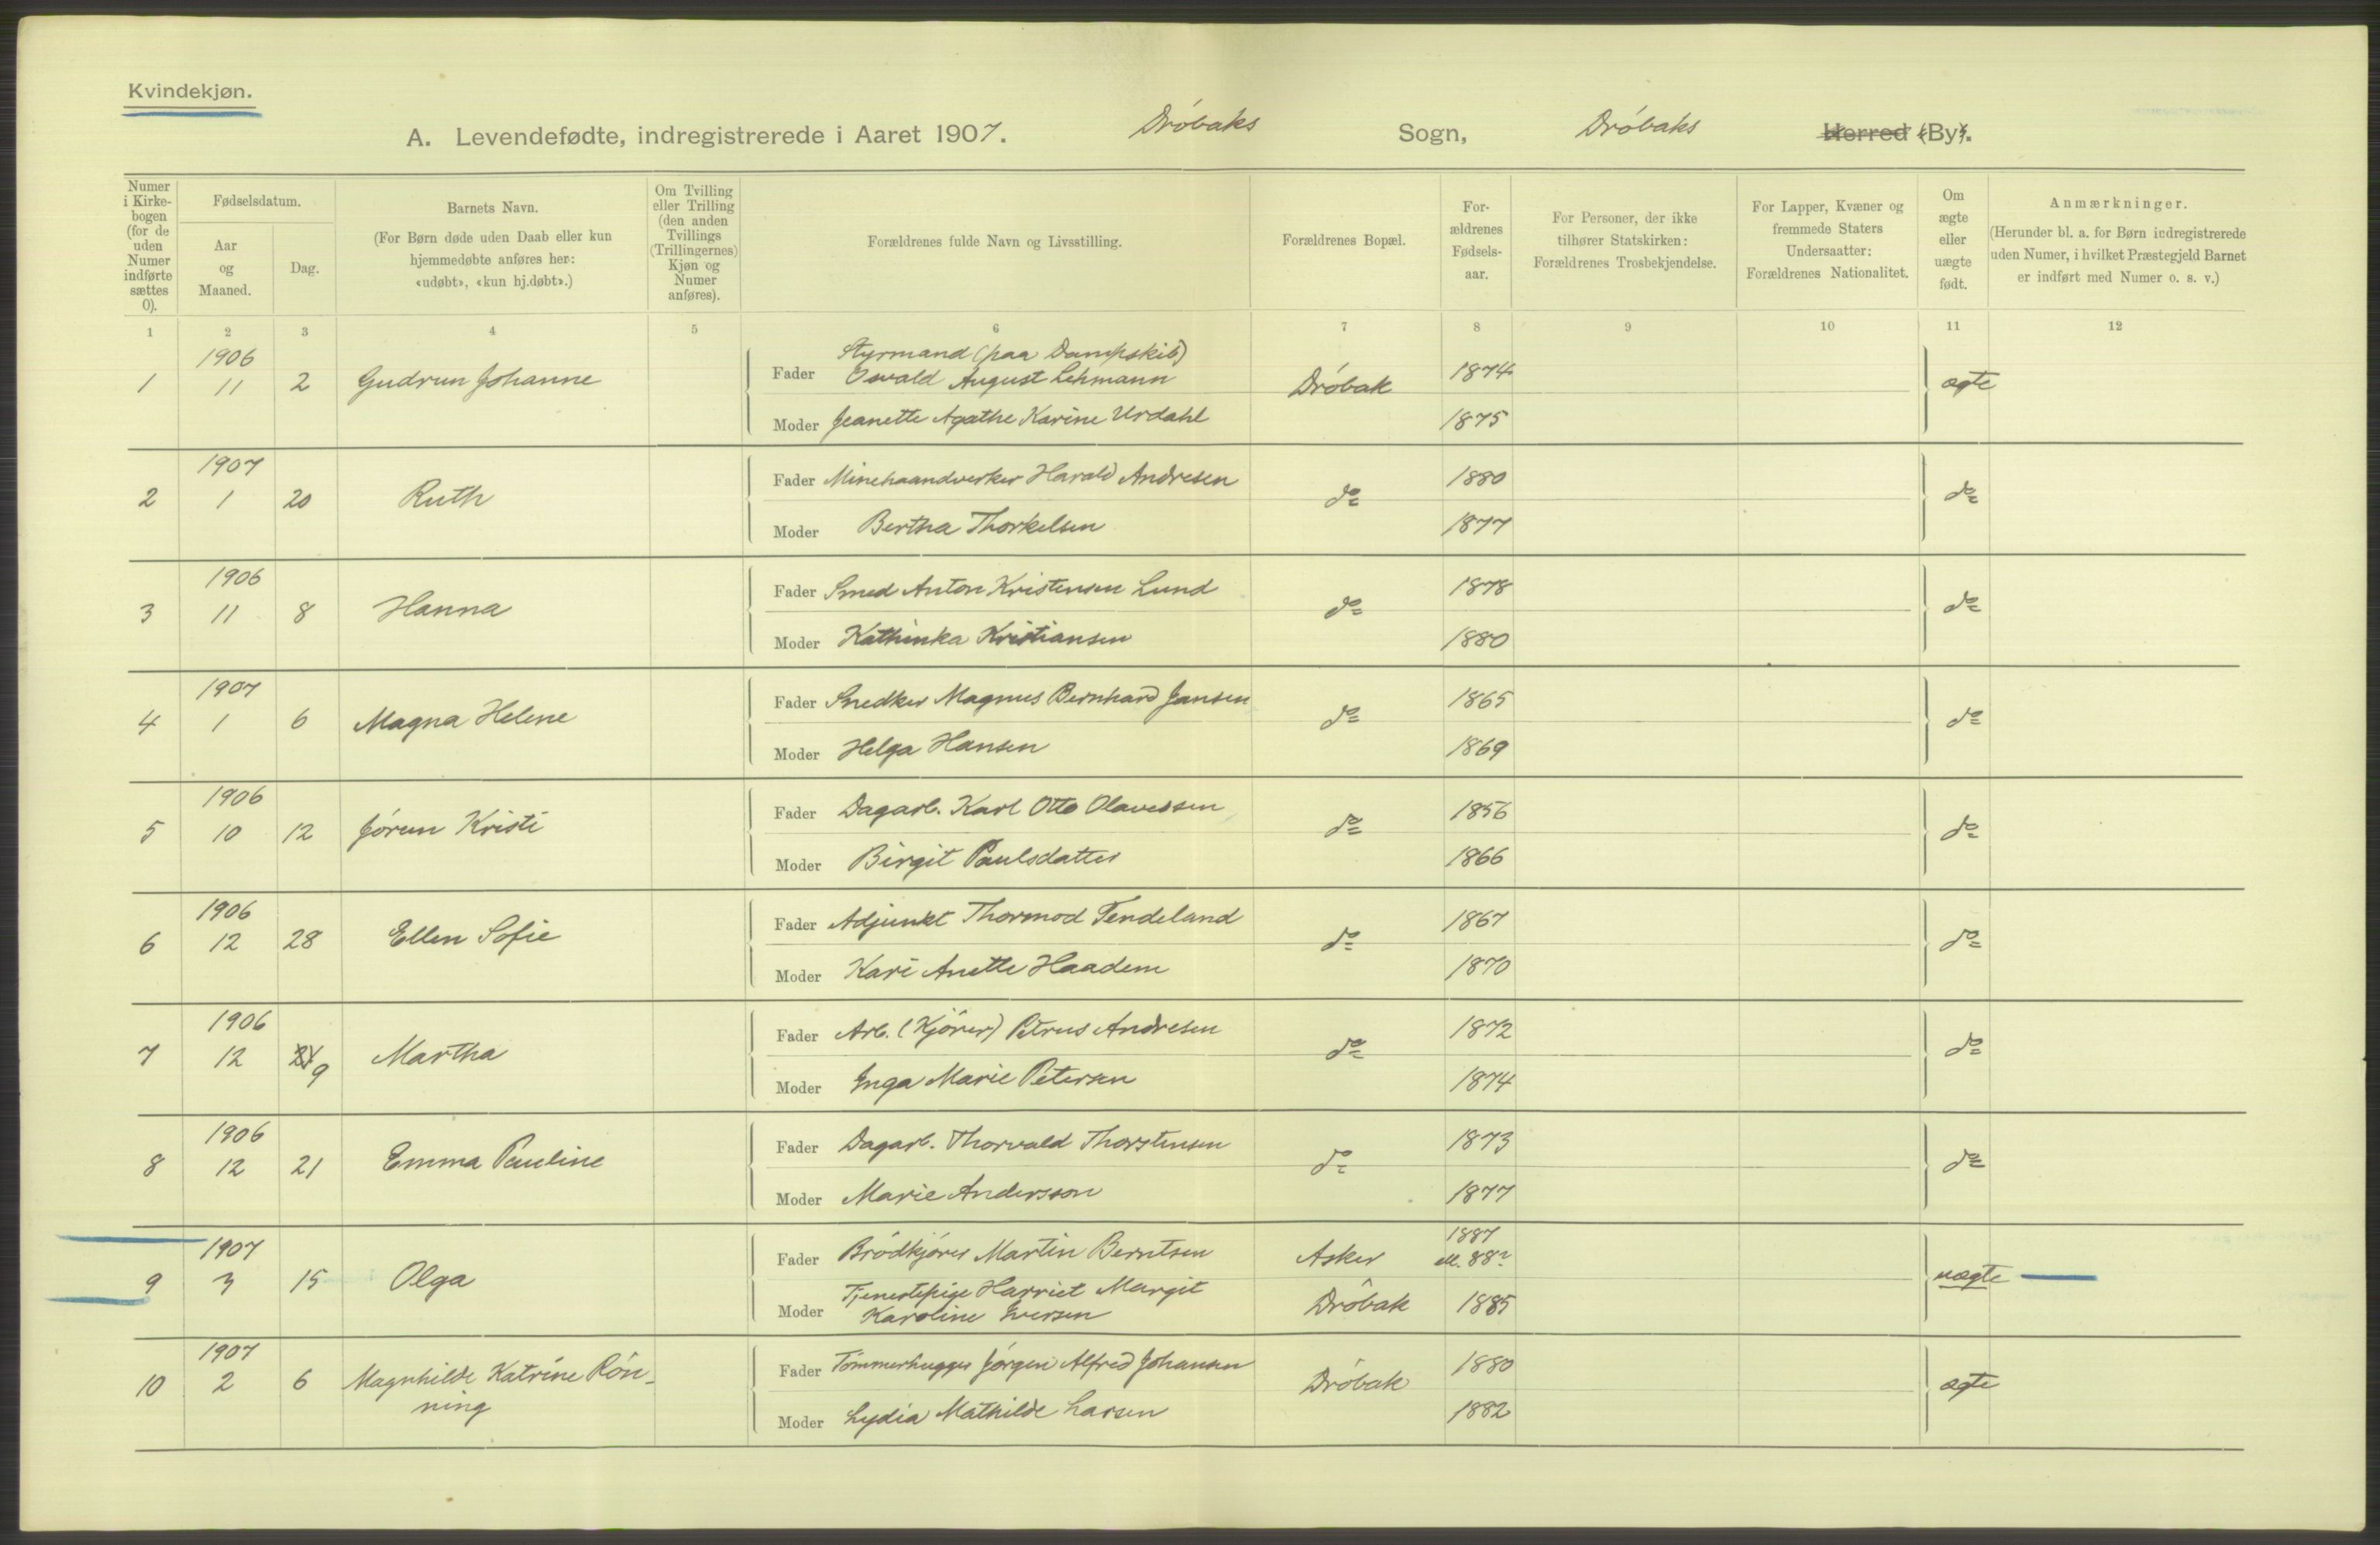 Kvindekjøn.
A. Levendefødte, indregistrerede i Aaret 1907. Drøbaks Sogn, Drøbaks Herred (By).
Numer i Kirkebogen (for de uden Numer indførte sættes 0).
Fødselsdatum.
Aar og Maaned.
Dag.
Barnets Navn.
(For Børn døde uden Daab eller kun hjemmedøbte anføres her: «udøbt», «kun hj.døbt».)
Om Tvilling eller Trilling (den anden Tvillings (Trillingernes) Kjøn og Numer anføres).
Forældrenes fulde Navn og Livsstilling.
Forældrenes Bopæl.
For-ældrenes Fødsels-aar.
For Personer, der ikke tilhører Statskirken: Forældrenes Trosbekjendelse.
For Lapper, Kvæner og fremmede Staters Undersaatter: Forældrenes Nationalitet.
Om ægte eller uægte født.
Anmærkninger.
(Herunder bl. a. for Børn indregistrerede uden Numer, i hvilket Præstegjeld Barnet er indført med Numer o. s. v.)
1 2 3 4 5 6 7 8 9 10 11 12
1 1906 11 2 Gudrun Johanne Fader Styrmand (paa Dampskib) Osvald August Lehmann Drøbak 1874 ægte
Moder Jeanette Agathe Karine Urdahl 1875
2 1907 1 20 Ruth Fader Minehaandverker Harald Andresen do 1880 do
Moder Bertha Thorkelsen 1877
3 1906 11 8 Hanna Fader Smed Anton Kristensen Lund do 1878 do
Moder Kathinka Kristiansen 1880
4 1907 1 6 Magna Helene Fader Snedker Magnus Bernhard Jansen do 1865 do
Moder Helga Hansen 1869
5 1906 10 12 Jórun Kristi Fader Dagarb. Karl Otto Olavessen do 1856 do
Moder Birgit Paulsdatter 1866
6 1906 12 28 Ellen Sofie Fader Adjunkt Thormod Tendeland do 1867 do
Moder Kari Anette Haadem 1870
7 1906 12 9 Martha Fader Arb. (Kjører) Petrus Andresen do 1872 do
Moder Inga Marie Petersen 1874
8 1906 12 21 Emma Pauline Fader Dagarb. Thorvald Thorstensen do 1873 do
Moder Marie Andersson 1877
9 1907 3 15 Olga Fader Brödkjører Martin Berntsen Asker 1887 ell. 88? uægte
Moder Tjenestepige Harriet Margit Karoline Iversen Drøbak 1885
10 1907 2 6 Magnhilde Katrine Rönning Fader Tömmerhugger Jörgen Alfred Johansen Drøbak 1880 ægte
Moder Lydia Mathilde Larsen 1882